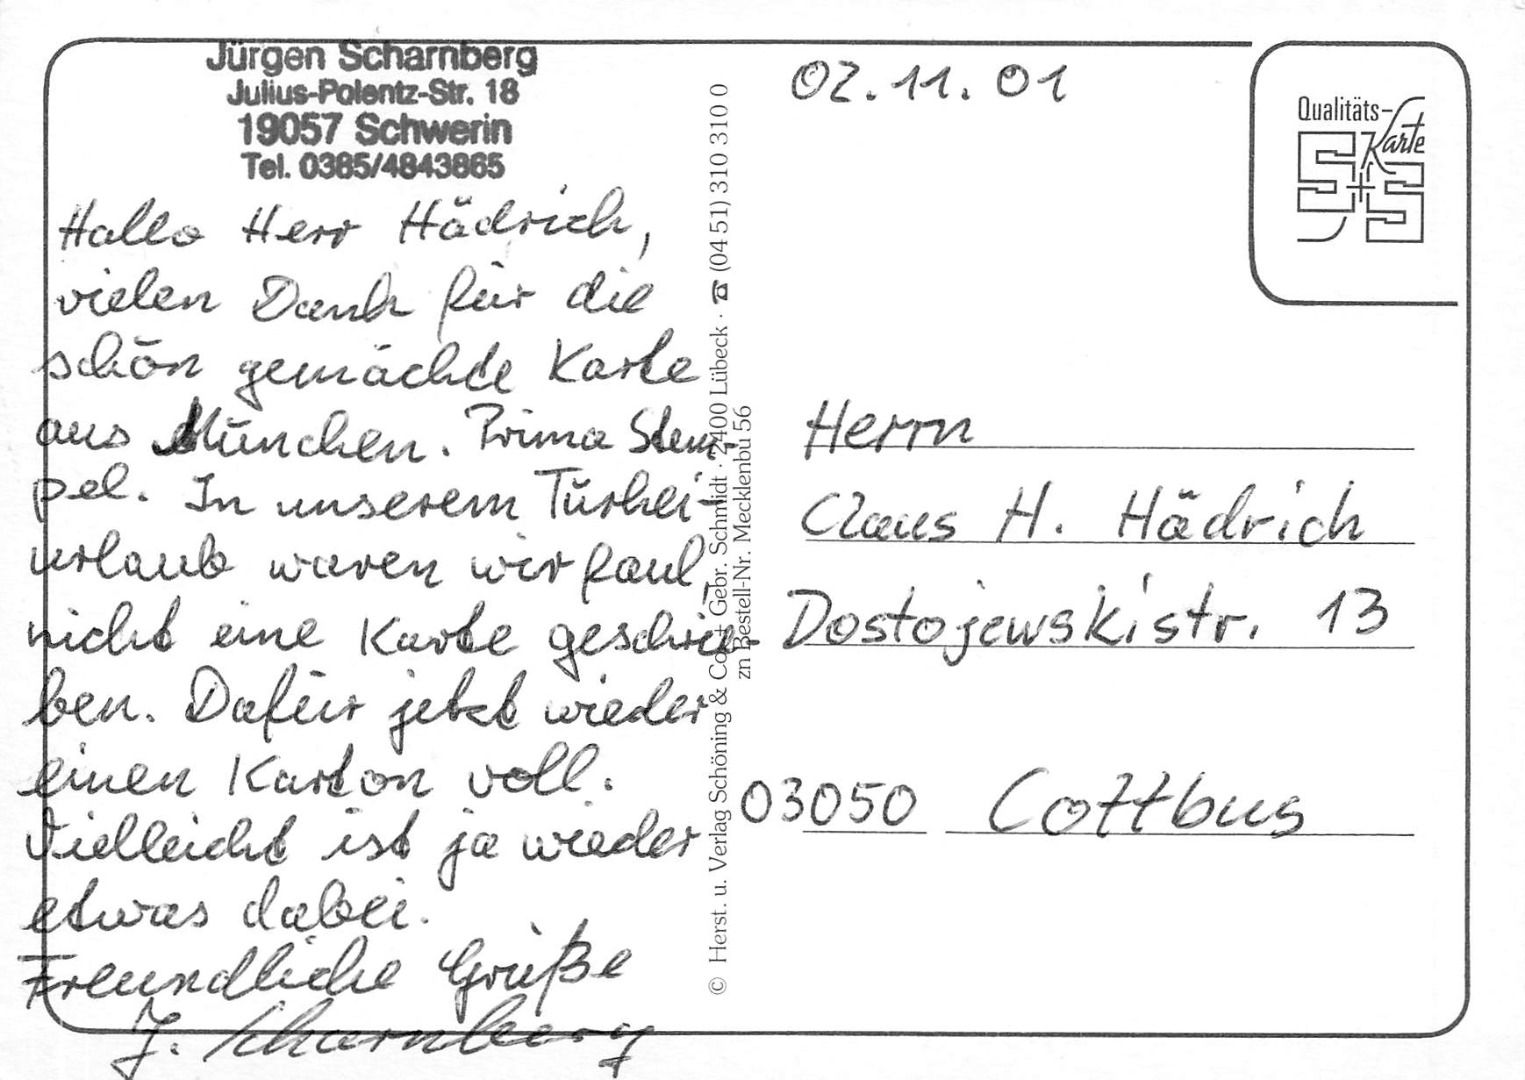 Jürgen Scharnberg
Julius-Polentz-Str. 18
19057 Schwerin
Tel. 0385/4843865
Hallo Herr Hädrich,
vielen Dank für die
schön gemachte Karte
aus München. Prima Stem-
pel. In unserem Türkei-
urlaub waren wir faul,
nicht eine Karte geschrie-
ben. Dafür jetzt wieder
einen Karton voll.
Vielleicht ist ja wieder
etwas dabei.
Freundliche Grüße
J. Scharnberg
© Herst. u. Verlag Schöning & Co + Gebr. Schmidt · 2400 Lübeck · ☎ (04 51) 310 310 0
zn Bestell-Nr. Mecklenbu 56
02.11.01
Qualitäts-
Karte
S+S
Herrn
Claus H. Hädrich
Dostojewskistr. 13
03050 Cottbus